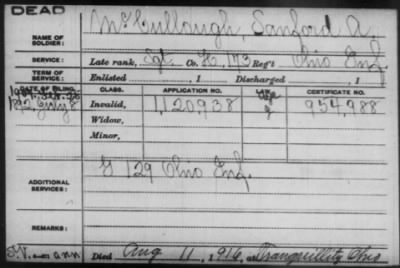 DEAD
NAME OF SOLDIER: McCullough, Sanford A.
SERVICE: Late rank, Sgt Co. H, 173 Reg't Ohio Inf.
TERM OF SERVICE: Enlisted , 1 Discharged , 1
DATE OF FILING. CLASS. APPLICATION NO. CERTIFICATE NO.
1892 July 8 Invalid, 1,120,938 954,988
Widow,
Minor,
ADDITIONAL SERVICES: G 129 Ohio Inf.
REMARKS:
Died Aug 11, 1916, at Tranquillity Ohio